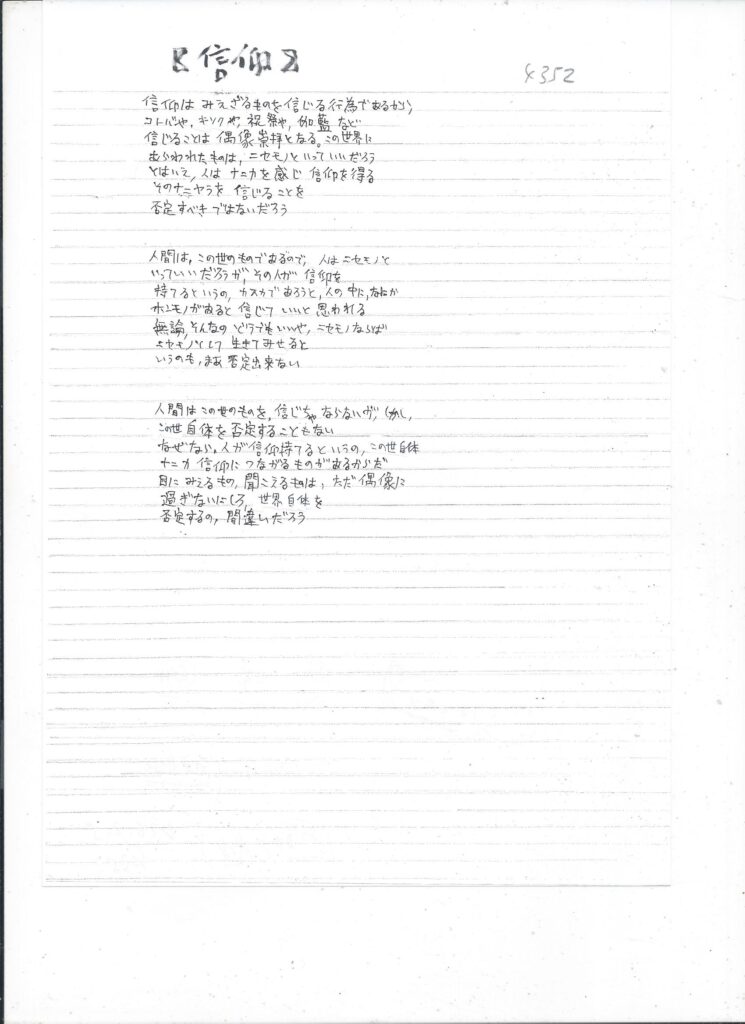 【信仰】
4352
信仰は みえざるものを信じる行為であるから、
コトバや、キソクや、祝祭や、伽藍など
信じることは 偶像崇拝となる。この世界に
あらわれたものは、ニセモノといっていいだろう
とはいえ、人は ナニカを感じ 信仰を得る
そのナニヤラを 信じることを
否定すべきではないだろう
人間は、この世のものであるので、人はニセモノと
いっていいだろうが、その人が 信仰を
持てるというの、カスカであろうと、人の中に、なにか
ホンモノがあると 信じて いいと 思われる
無論、そんなの どうでもいいや、ニセモノならば
ニセモノとして 生きてみせると
いうのも、まあ 否定出来ない
人間はこの世のものを、信じちゃならないが、しかし、
この世自体を否定することもない
なぜなら、人が信仰持てるというの、この世自体
ナニカ 信仰に つながるものがあるからだ
目に みえるもの、聞こえるものは、ただ偶像に
過ぎないにしろ、世界自体を
否定するの、間違いだろう